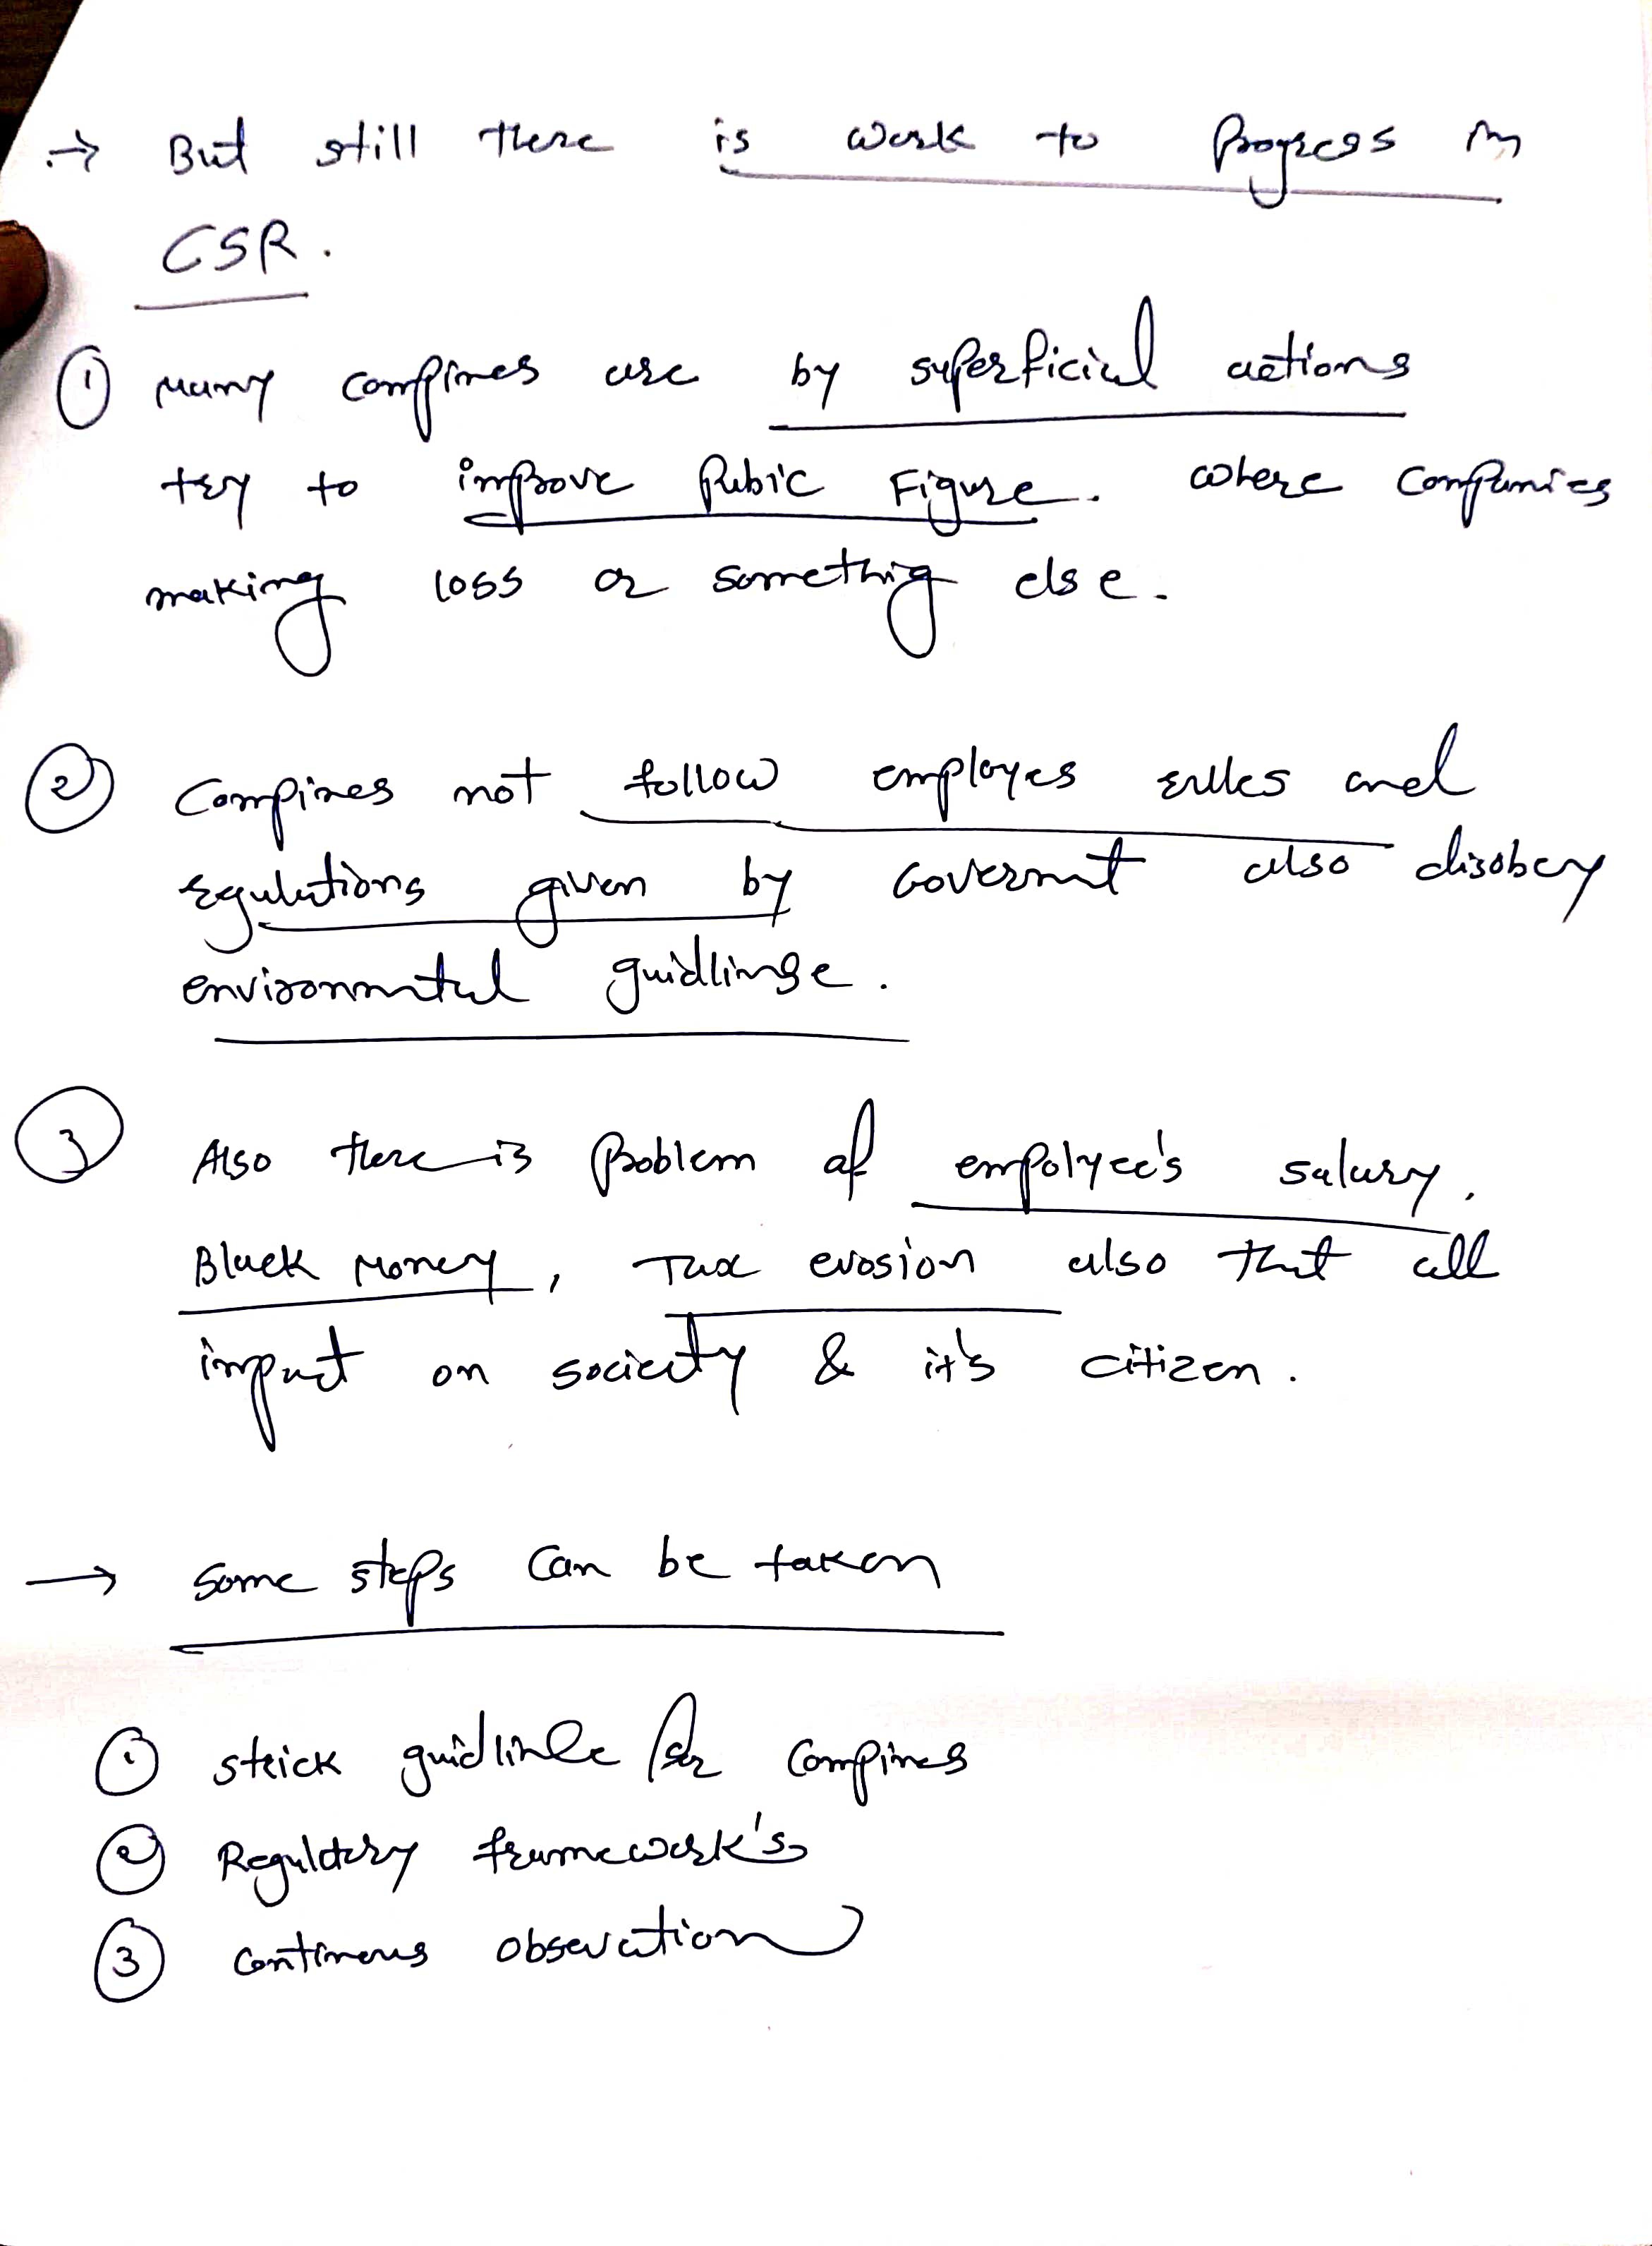 → But still there is work to Progress in
CSR.
① Many compines are by superficial actions
try to improve Pubic Figure. where companies
making loss or something else.
② Compines not follow employes rules and
regulations given by Governmt also disobey
environmntal guidlinse.
③ Also there is Problem of empolyee's salary,
Black Money, Tax evosion also that all
impact on society & it's citizen.
→ some steps can be taken
① strick guidline for compines
② Regulatory framework's
③ continous obsevation